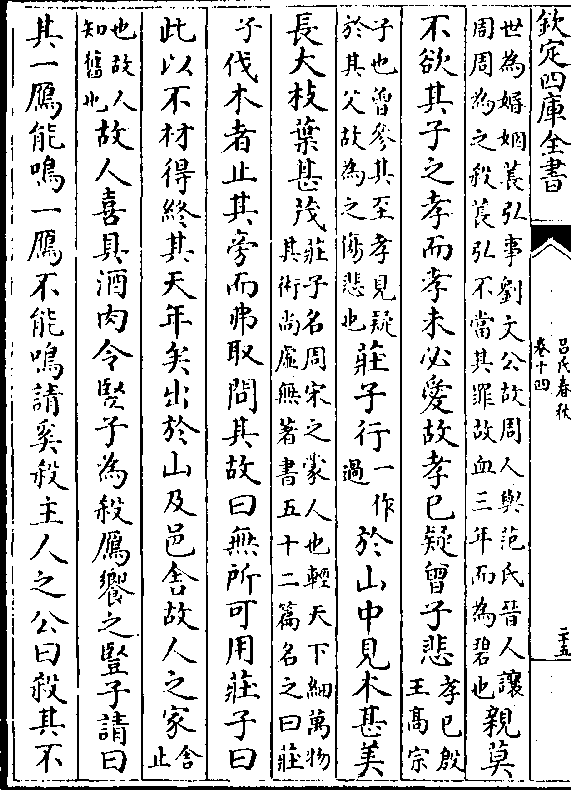 欽定四庫全書
呂氏春秋
卷十四
二十五
世為婚姻萇弘事劉文公故周人與范氏晉人讓
周周為之殺萇弘不當其罪故血三年而為碧也親莫
不欲其子之孝而孝未必愛故孝已疑曾子悲孝已殷
王高宗
子也曾參其至孝見疑
於其父故為之傷悲也莊子行一作
過於山中見木甚美
長大枝葉甚茂莊子名周宋之蒙人也輕天下細萬物
其術尚虛無著書五十二篇名之曰莊
子伐木者止其旁而弗取問其故曰無所可用莊子曰
此以不材得終其天年矣出於山及邑舍故人之家舍
止
也故人
知舊也故人喜具酒肉令豎子為殺鴈饗之豎子請曰
其一鴈能鳴一鴈不能鳴請奚殺主人之公曰殺其不